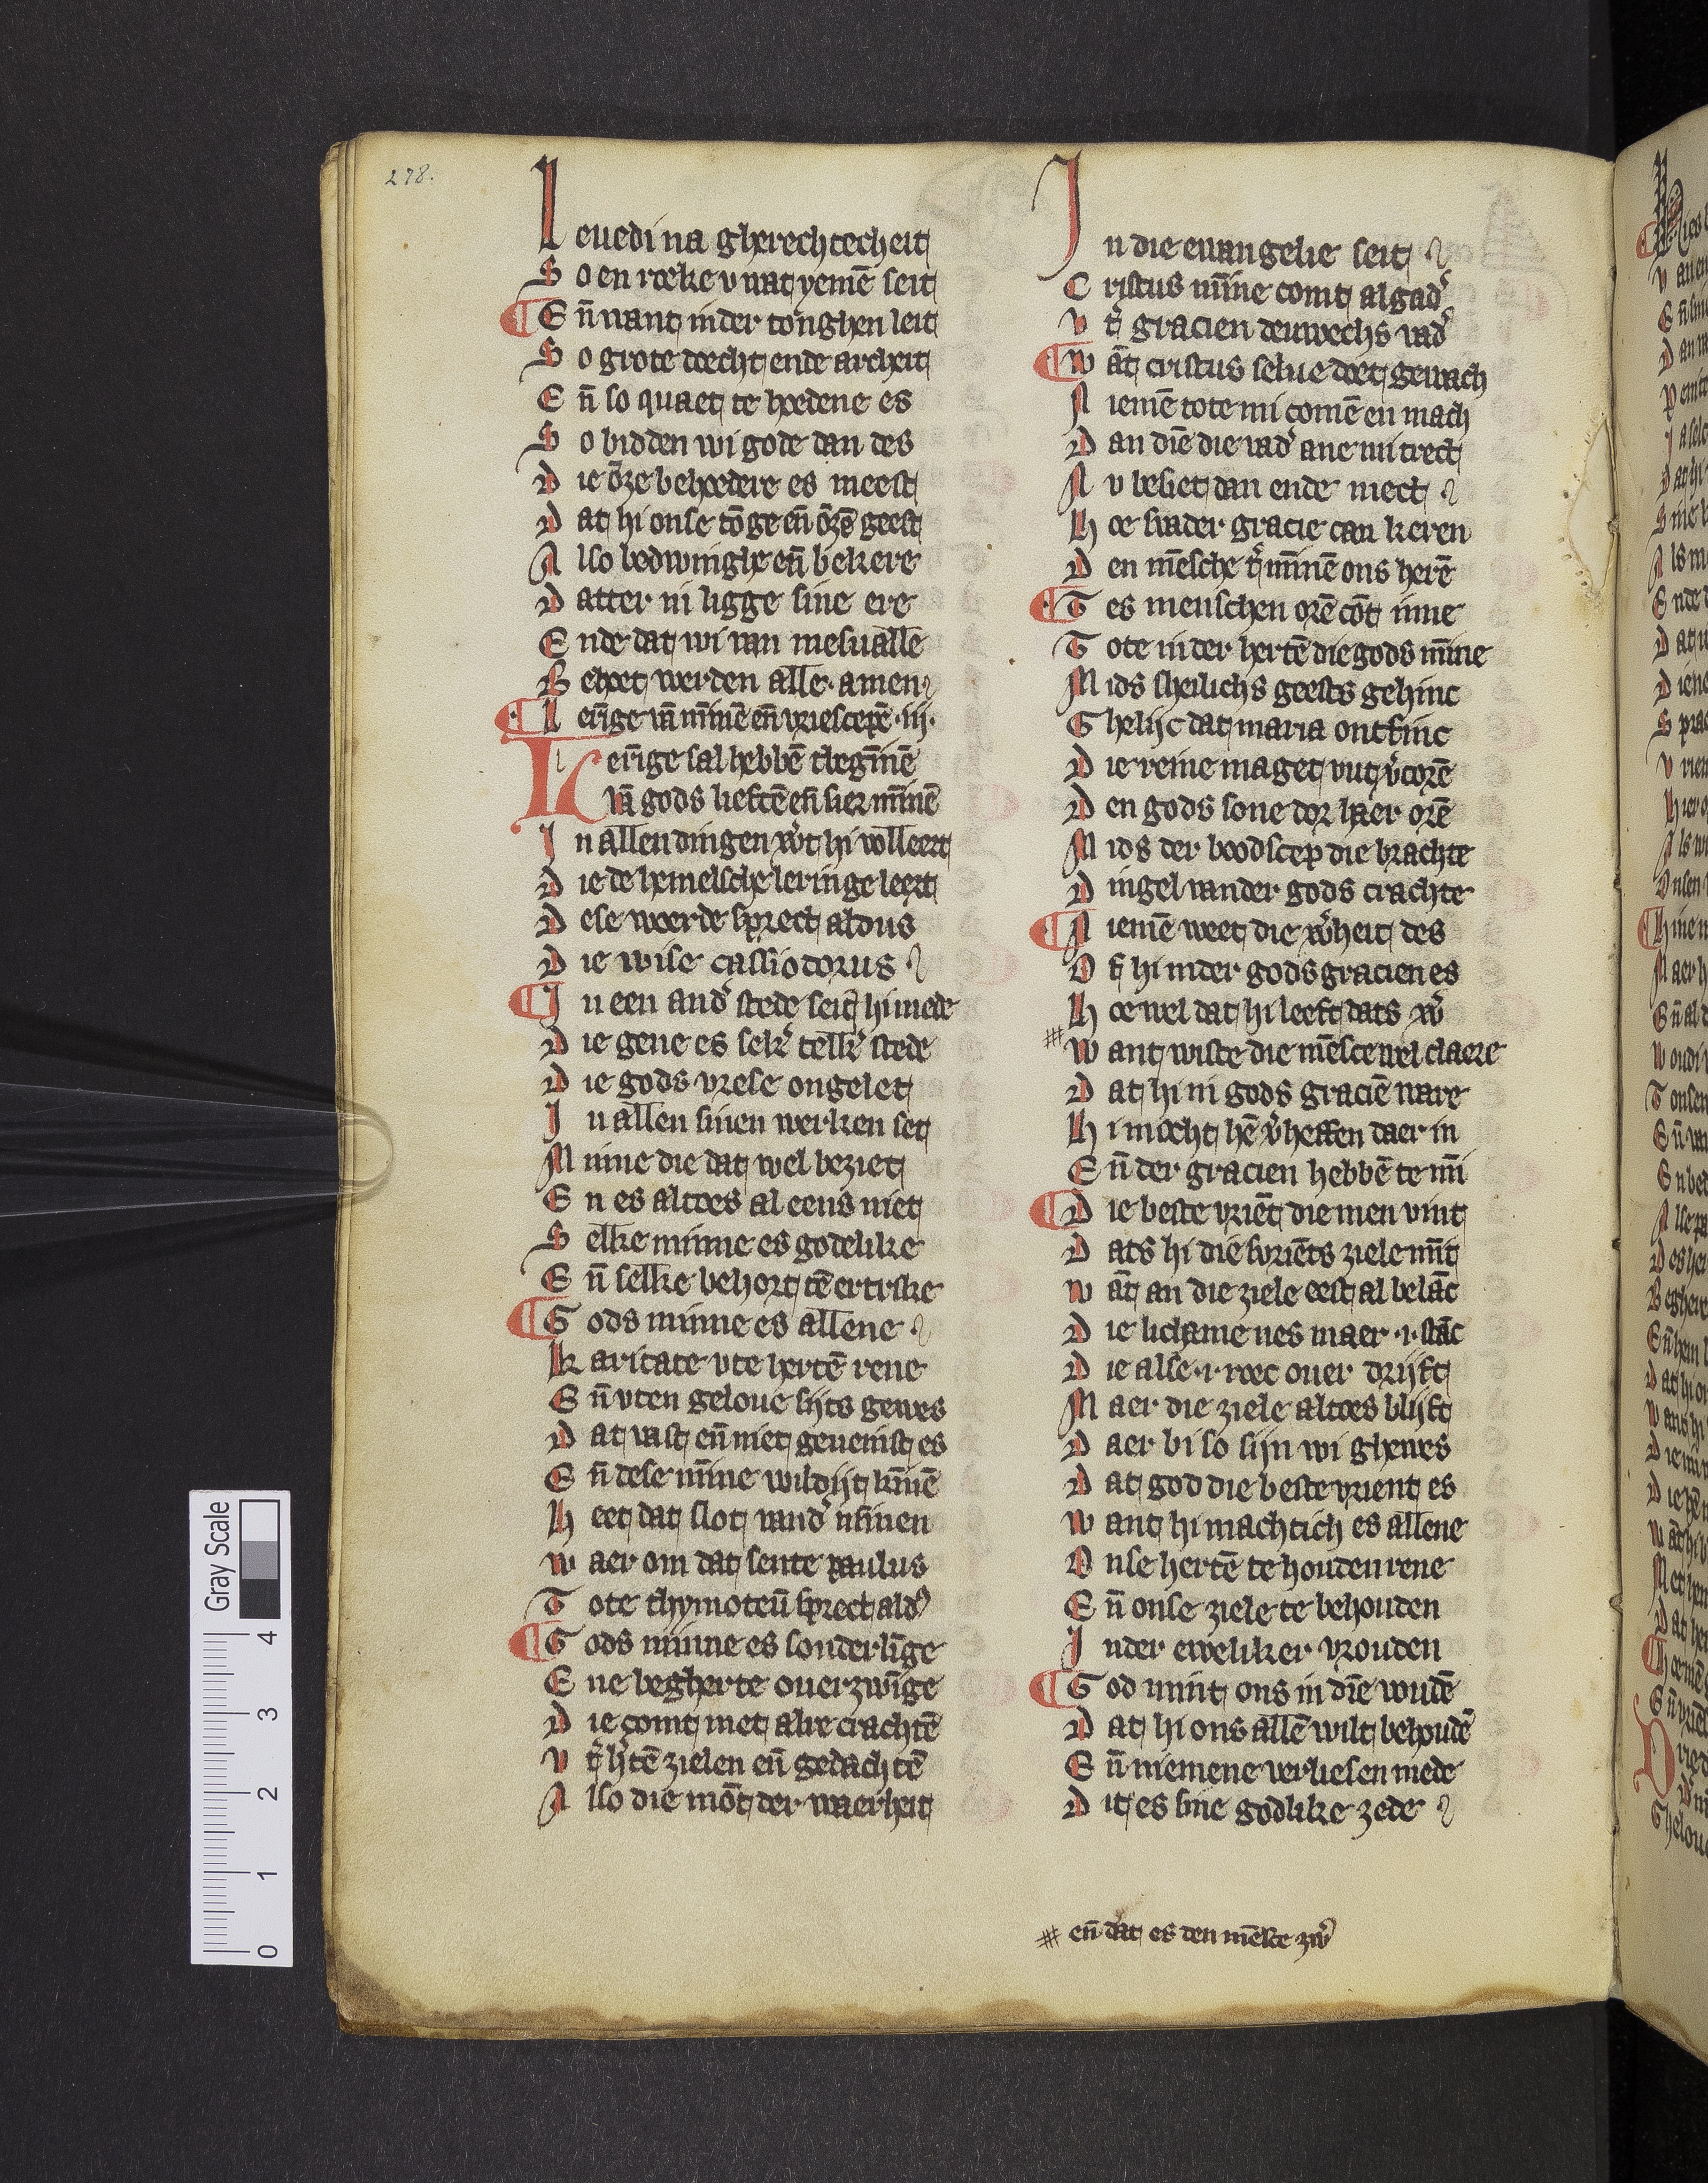 278.
Leuedi na gherechtecheit
So en roeke v wat yemē seit
¶ En̄ want in der tonghen leit
So grote doecht ende archeit
En̄ so quaet te hoedene es
So bidden wi gode dan des
Die ōze behoedere es meest
Dat hi onse tōge en̄ ōzē geest
Also bedwinghe en̄ bekere
Datter in ligge sine ere
Ende dat wi van mesualle
Behoet werden alle. amen
¶ Leri̅ge vā mi̅nē en̄ vriescepē .iij.
Leri̅ge sal hebbē tbegi̅nē
Vā gods liefte en̄ sier mi̅nē
In allen dingen wͬt hi volleert
Die de hemelsche leringe leert
Dese woerde sprect aldus
Die wise cassiodorus
¶ In een andͬ stede seit hi mede
Die gene es sekͬ telkͬ stede
Die gods vrese ongelet
In allen sinen werken set
Minne die dat wel beziet
En es altoes al eens niet
Selke minne es godelike
En̄ selke behort tē ertrike
¶ Gods minne es allene
Karitate vte hertē rene
En̄ vten geloue sijts gewes
Dat vast en̄ niet geueinst es
En̄ dese mi̅ne wildijt ki̅nē
Heet dat slot vandͬ mi̅nen
Waer om dat sente paulus
Tote thymoteū sprect aldꝰ
¶ Gods minne es sonderli̅ge
Ene begherte ouerzwi̅ge
Die comt met alre crachtē
Vtͬ hͬtē zielen en̄ gedachtē
Also die mōt der waerheit
In die ewangelie seit
Cristus mi̅ne comt algadͬ
Vtͬ gracien deuwechs vadͬ
¶ Wāt cristus selue doet gewach
Niemē tote mi comē en mach
Dan diē die vadͬ ane mi trect
Nv besiet dan ende mect
Hoe svader gracie can keren
Den mēsche tͬ mi̅nē ons herē
¶ Tes menschen orē cōt inne
Tote in der hertē die gods mi̅ne
Mids sheilichs geests gehinc
Ghelijc dat maria ontfinc
Die reine maget vut vͬcorē
Den gods sone dor haer orē
Mids der boodscep die brachte
Dingel vander gods crachte
¶ Niemē weet die wͬheit des
Of hi inder gods gracien es
Hoe wel dat hi leeft dats wͬ
# Want wiste die mēsce wel claere
Dat hi in gods graciē ware
Hi mocht hē vͬheffen daer in
En̄ der gracien hebbē te mi̅
¶ Die beste vriēt die men vint
Dats hi die svriēts ziele mi̅t
Wāt an die ziele eest al belāc
Die lichame nes maer .i. stāc
Die alse .i. roec ouer drijft
Maer die ziele altoes blijft
Daer bi so sijn wi ghewes
Dat god die beste vrient es
Want hi machtich es allene
Onse hertē te houden rene
En̄ onse ziele te behouden
Inder eweliker vrouden
¶ God mint ons in diē voudē
Dat hi ons allē wilt behoudē
En̄ niemene verliesen mede
Dit es sine godlike zede
# en̄ dat es den mēsce zwͬ
Gray Scale
0 1 2 3 4